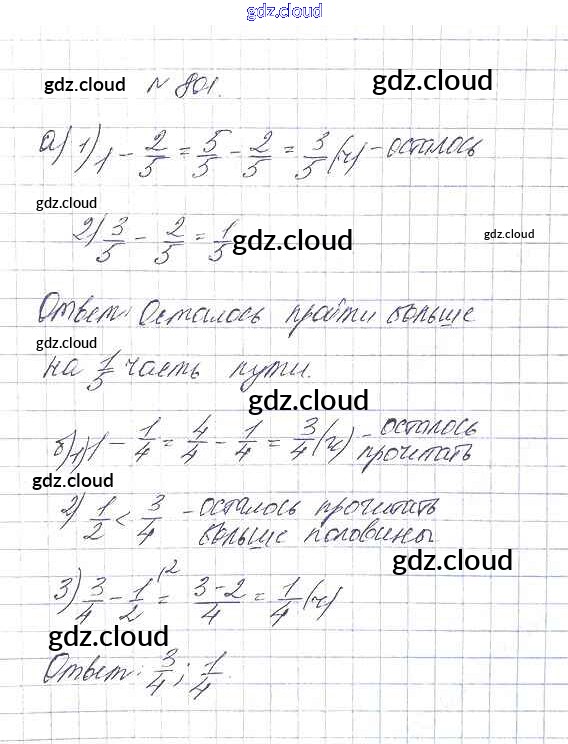 gdz.cloud
gdz.cloud № 801. gdz.cloud
а) 1) 1 - 2/5 = 5/5 - 2/5 = 3/5 (ч) - осталось
gdz.cloud
2) 3/5 - 2/5 = 1/5 gdz.cloud gdz.cloud
Ответ: Осталось пройти больше
gdz.cloud
на 1/5 часть пути.
gdz.cloud
б) 1) 1 - 1/4 = 4/4 - 1/4 = 3/4 (ч) - осталось
прочитать
gdz.cloud
2) 1/2 < 3/4 - осталось прочитать
больше половины
gdz.cloud
3) 3/4 - 1/2 (2 = 3-2/4 = 1/4 (ч)
gdz.cloud
Ответ: 3/4; 1/4.